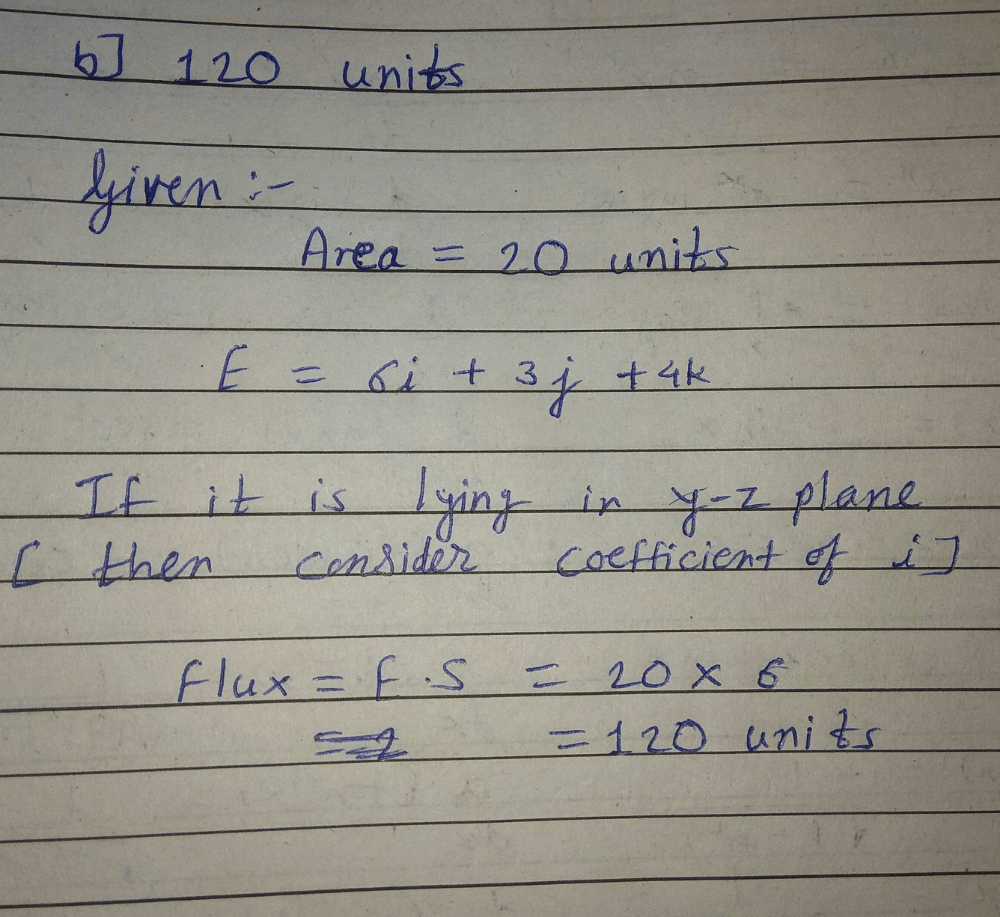 b] 120 units
Given :-
Area = 20 units
E = 6i + 3j + 4k
If it is lying in y-z plane
[ then consider coefficient of i ]
Flux = E.S = 20 x 6
= 120 units